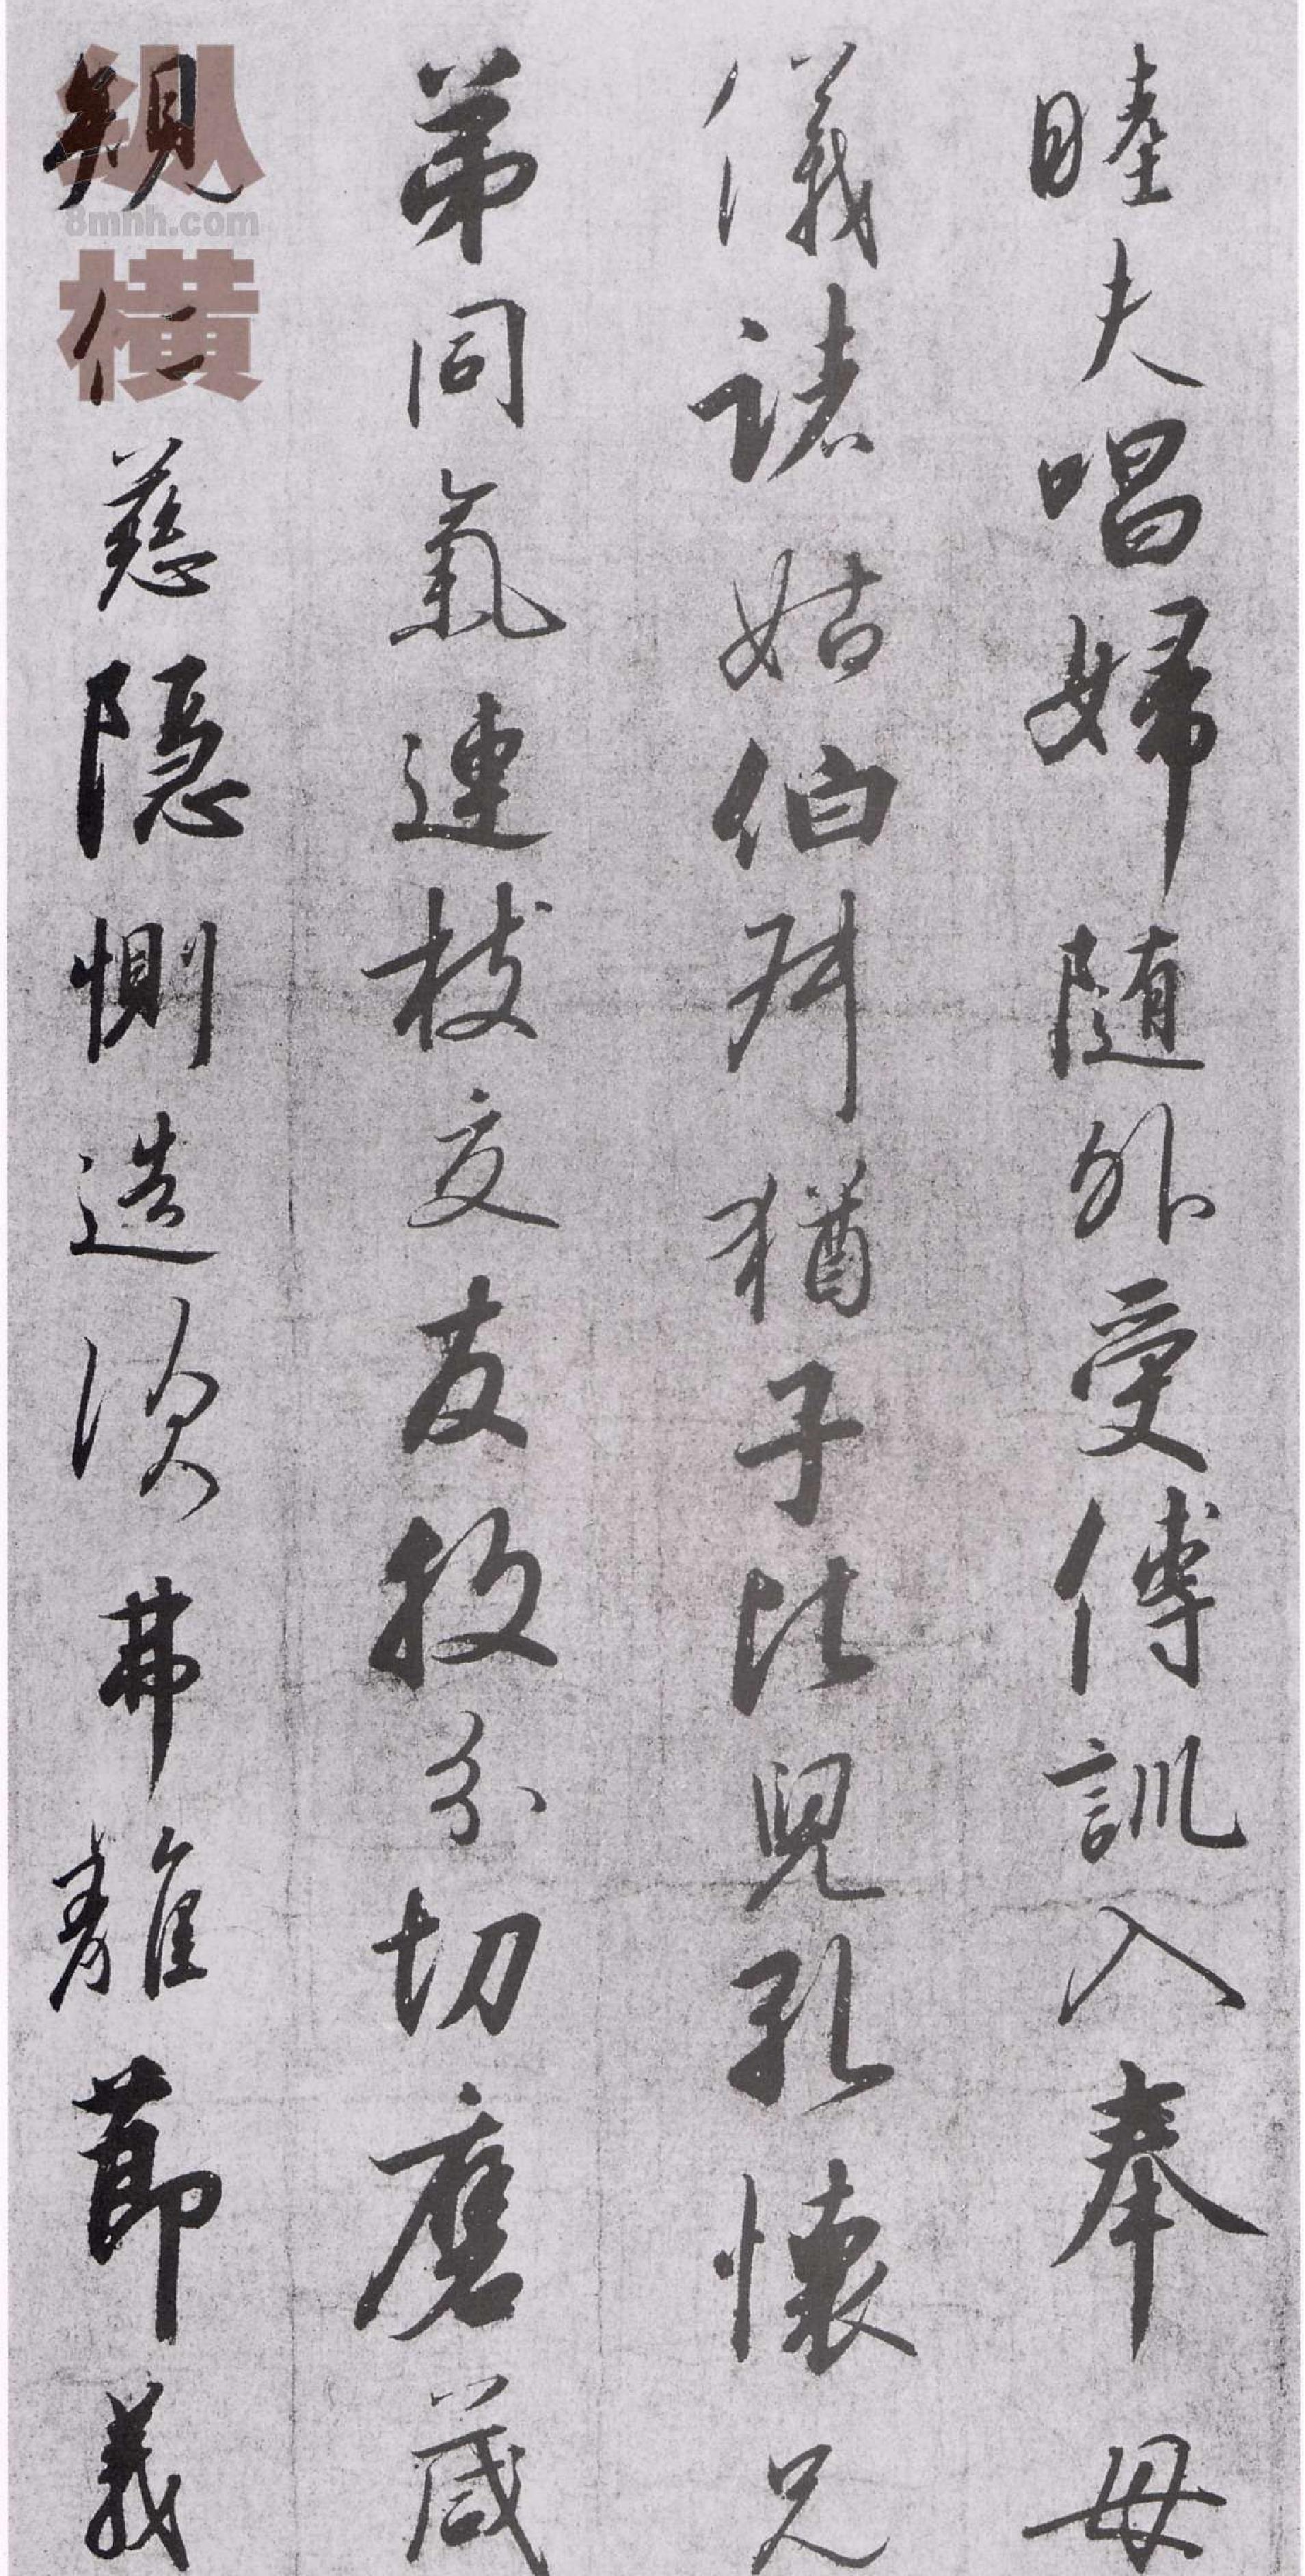 睦夫唱婦随外受傅訓入奉母
儀諸姑伯叔猶子比兒孔懷兄
弟同氣連枝交友投分切磨箴
規仁慈隱惻造次弗離節義
纵横
8mnh.com